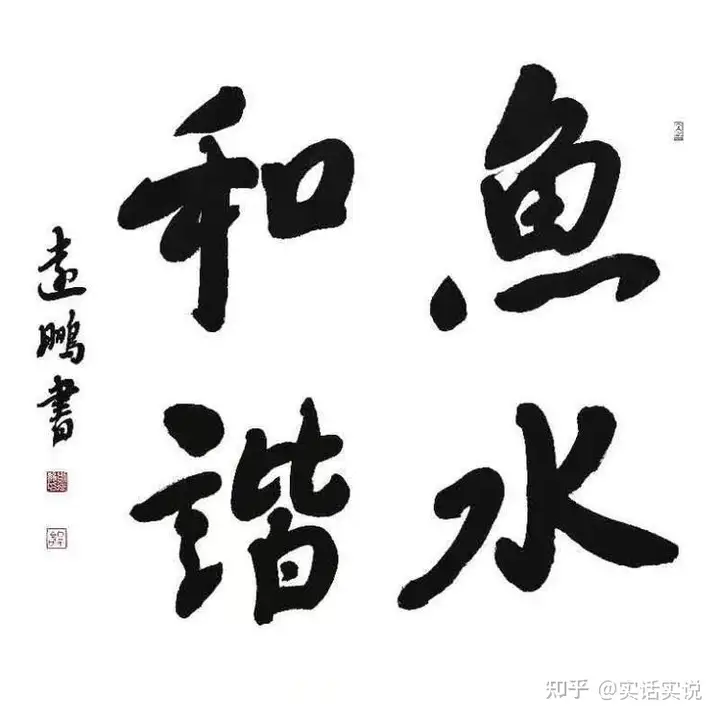 魚水
和諧
遠鵬書
知乎 @实话实说